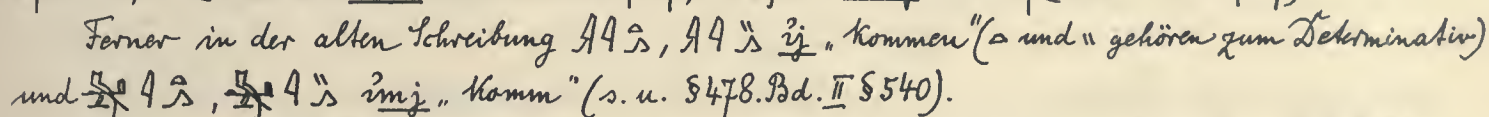 Ferner in der alten Schreibung 𓇋𓇋𓏏𓂻, 𓇋𓇋𓏭𓂻 ꞽj „Kommen“ (𓏏 und 𓏭 gehören zum Determinativ)
und 𓇋𓏏𓂻, 𓇋𓏭𓂻 ꞽmj „Komm“ (s. u. §478. Bd. II §540).